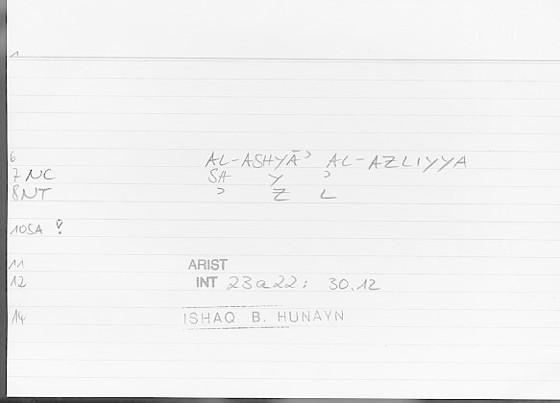 1
6 AL-ASHYĀʾ AL-AZLIYYA
7 NC SH Y ʾ
8 NT ʾ Z L
10 SA
11 ARIST
12 INT 23a22: 30.12
14 ISHAQ B. HUNAYN